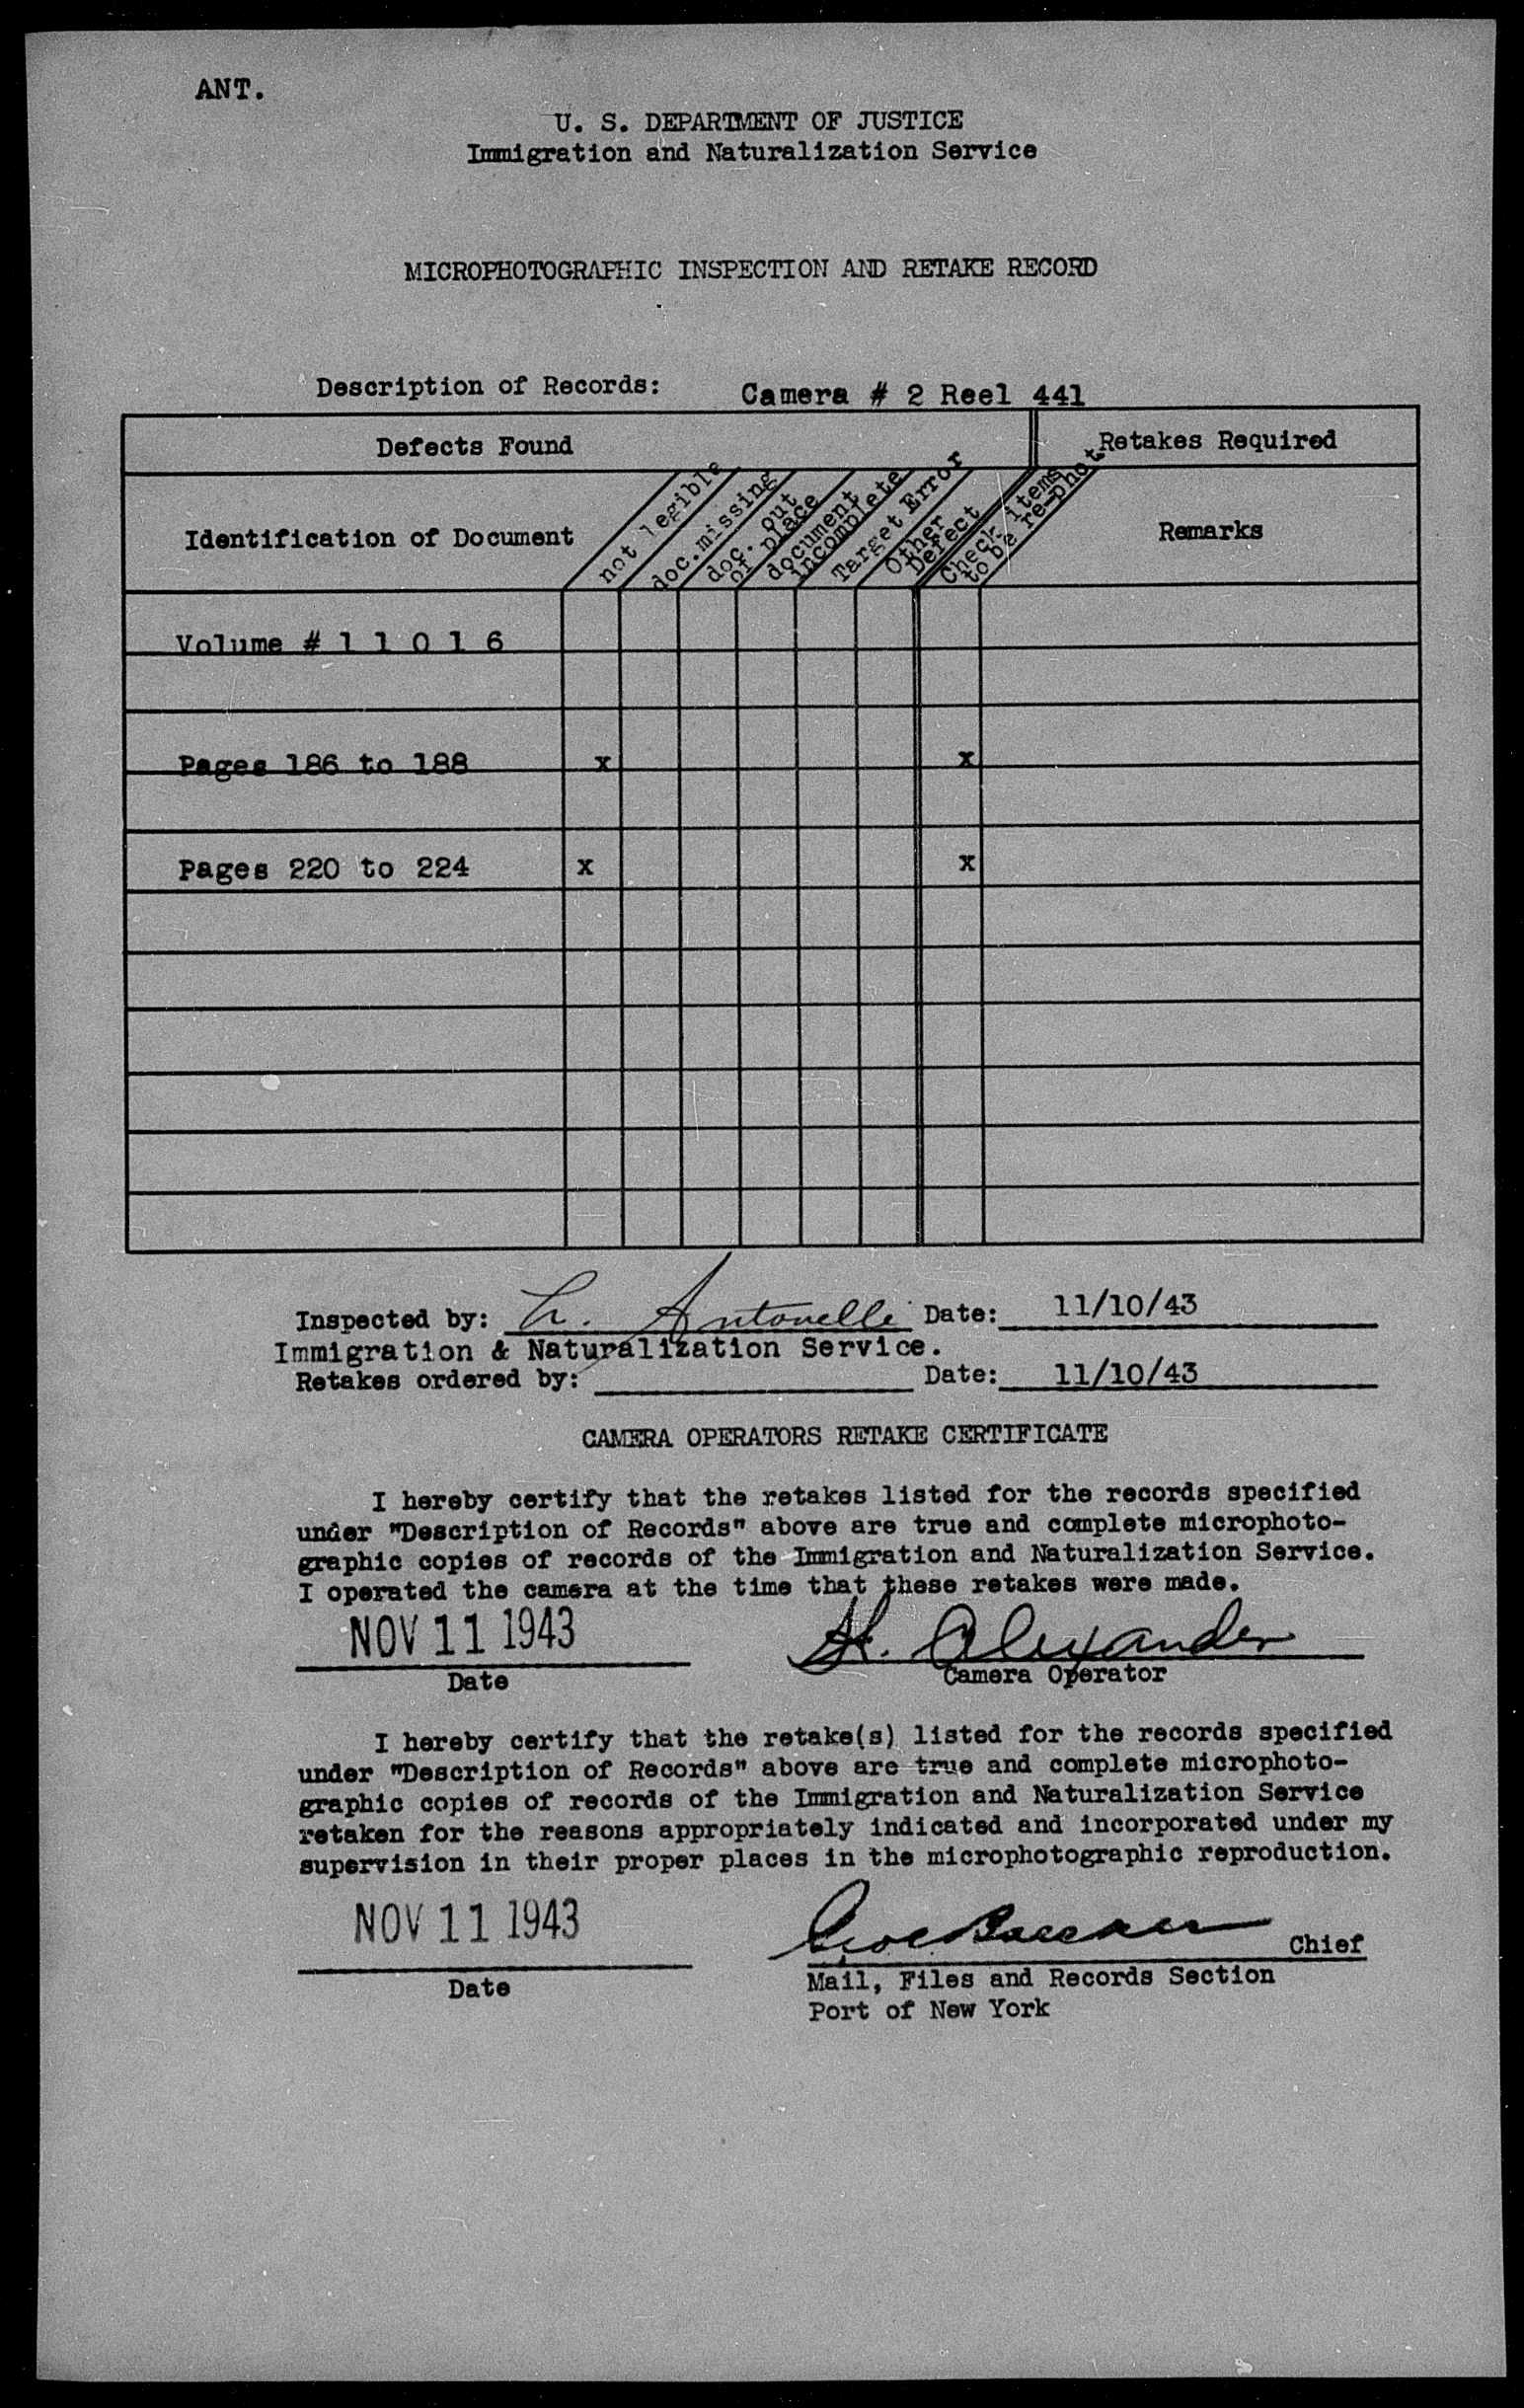 ANT.
U. S. DEPARTMENT OF JUSTICE
Immigration and Naturalization Service
MICROPHOTOGRAPHIC INSPECTION AND RETAKE RECORD
Description of Records: Camera # 2 Reel 441
Defects Found
Retakes Required
Identification of Document
not legible
doc.missing
doc. out
of place
document
incomplete
Target Error
Other
Defect
Check items
to be re-phot.
Remarks
Volume # 1 1 0 1 6
Pages 186 to 188 x x
Pages 220 to 224 x x
Inspected by: Antonelli Date: 11/10/43
Immigration & Naturalization Service.
Retakes ordered by: Date: 11/10/43
CAMERA OPERATORS RETAKE CERTIFICATE
I hereby certify that the retakes listed for the records specified
under "Description of Records" above are true and complete microphoto-
graphic copies of records of the Immigration and Naturalization Service.
I operated the camera at the time that these retakes were made.
NOV 11 1943 H. Alexander
Date Camera Operator
I hereby certify that the retake(s) listed for the records specified
under "Description of Records" above are true and complete microphoto-
graphic copies of records of the Immigration and Naturalization Service
retaken for the reasons appropriately indicated and incorporated under my
supervision in their proper places in the microphotographic reproduction.
NOV 11 1943 Chief
Date Mail, Files and Records Section
Port of New York